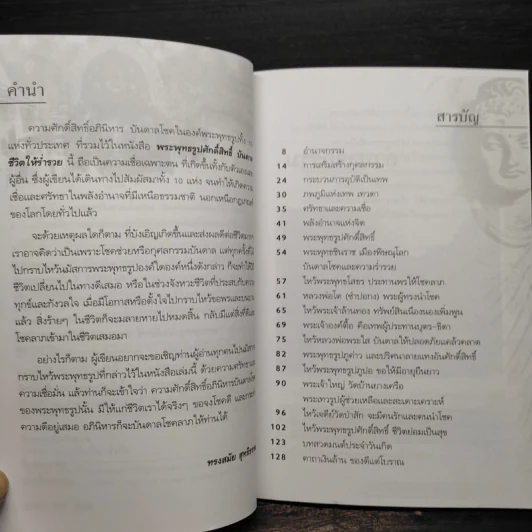 คำนำ
ความศักดิ์สิทธิ์อภินิหาร บันดาลโชคในองค์พระพุทธรูปทั้ง
แห่งทั่วประเทศ ที่รวมไว้ในหนังสือ พระพุทธรูปศักดิ์สิทธิ์ บันดาล
ชีวิตให้ร่ำรวย นี้ ถือเป็นความเชื่อเฉพาะตน ที่เกิดขึ้นทั้งกับตัวเองและ
ผู้อื่น ซึ่งผู้เขียนได้เดินทางไปสัมผัสมาทั้ง 10 แห่ง จนทำให้เกิดความ
เชื่อและศรัทธาในพลังอำนาจที่มีเหนือธรรมชาติ นอกเหนือกฎเกณฑ์
ของโลกโดยทั่วไปแล้ว
จะด้วยเหตุผลใดก็ตาม ที่บังเอิญเกิดขึ้นและส่งผลดีต่อชีวิต
เราอาจคิดว่าเป็นเพราะโชคช่วยหรือกุศลกรรมบันดาล แต่ทุกครั้งที่
ไปกราบไหว้นมัสการพระพุทธรูปองค์ใดองค์หนึ่งดังกล่าว ก็จะทำให้
ชีวิตเปลี่ยนไปในทางดีเสมอ หรือในช่วงจังหวะชีวิตที่ประสบกับความ
ทุกข์และกังวลใจ เมื่อมีโอกาสหรือตั้งใจไปกราบไหว้ขอพร
แล้ว สิ่งร้ายๆ ในชีวิตก็จะมลายหายไปหมดสิ้น กลับมีแต่สิ่งดี
โชคลาภเข้ามาในชีวิตเสมอมา
อย่างไรก็ตาม ผู้เขียนอยากจะขอเชิญท่านผู้อ่านทุกคนไปนมัส
กราบไหว้พระพุทธรูปที่กล่าวไว้ในหนังสือเล่มนี้ ด้วยความศรัทธา
ความเชื่อมั่น แล้วท่านก็จะเข้าใจว่า ความศักดิ์สิทธิ์อภินิหารบันดาล
ของพระพุทธรูปนั้น มีให้แก่ชีวิตเราได้จริงๆ ขอจงโชคดี
ความดีอยู่เสมอ อภินิหารก็จะบันดาลโชคลาภให้ท่านได้
ทรงสมัย
สารบัญ
8 อำนาจกรรม
14 การเสริมสร้างกุศลกรรม
24 กระบวนการอุบัติเป็นเทพ
30 ภพภูมิแห่งเทพ เทวดา
35 ศรัทธาและความเชื่อ
41 พลังอำนาจแห่งจิต
49 พระพุทธรูปศักดิ์สิทธิ์
54 พระพุทธชินราช เมืองพิษณุโลก
บันดาลโชคและความร่ำรวย
57 ไหว้พระพุทธโสธร ประทานพรให้โชคลาภ
61 หลวงพ่อโต (ซำปอกง) พระผู้ทรงนำโชค
65 ไหว้พระเจ้าล้านทอง ทรัพย์สินเนืองนองเพิ่มพูน
69 พระเจ้าองค์ตื้อ คือเทพผู้ประทานบุตร-ธิดา
75 ไหว้หลวงพ่อพระใส บันดาลให้ปลอดภัยแคล้วคลาด
82 พระพุทธรูปภูค่าว และปริศนาลายแทงอันศักดิ์สิทธิ์
87 ไหว้พระพุทธรูปภูปอ ขอให้มีอายุยืนยาว
90 พระเจ้าใหญ่ วัดบ้านยางเครือ
พระเทวรูปผู้ช่วยเหลือและสะเดาะเคราะห์
96 ไหว้เจดีย์วัดป่าสัก จะมีคนรักและคนนำโชค
102 ไหว้พระพุทธรูปศักดิ์สิทธิ์ ชีวิตย่อมเป็นสุข
123 บทสวดมนต์ประจำวันเกิด
128 คาถาเงินล้าน ของดีแต่โบราณ